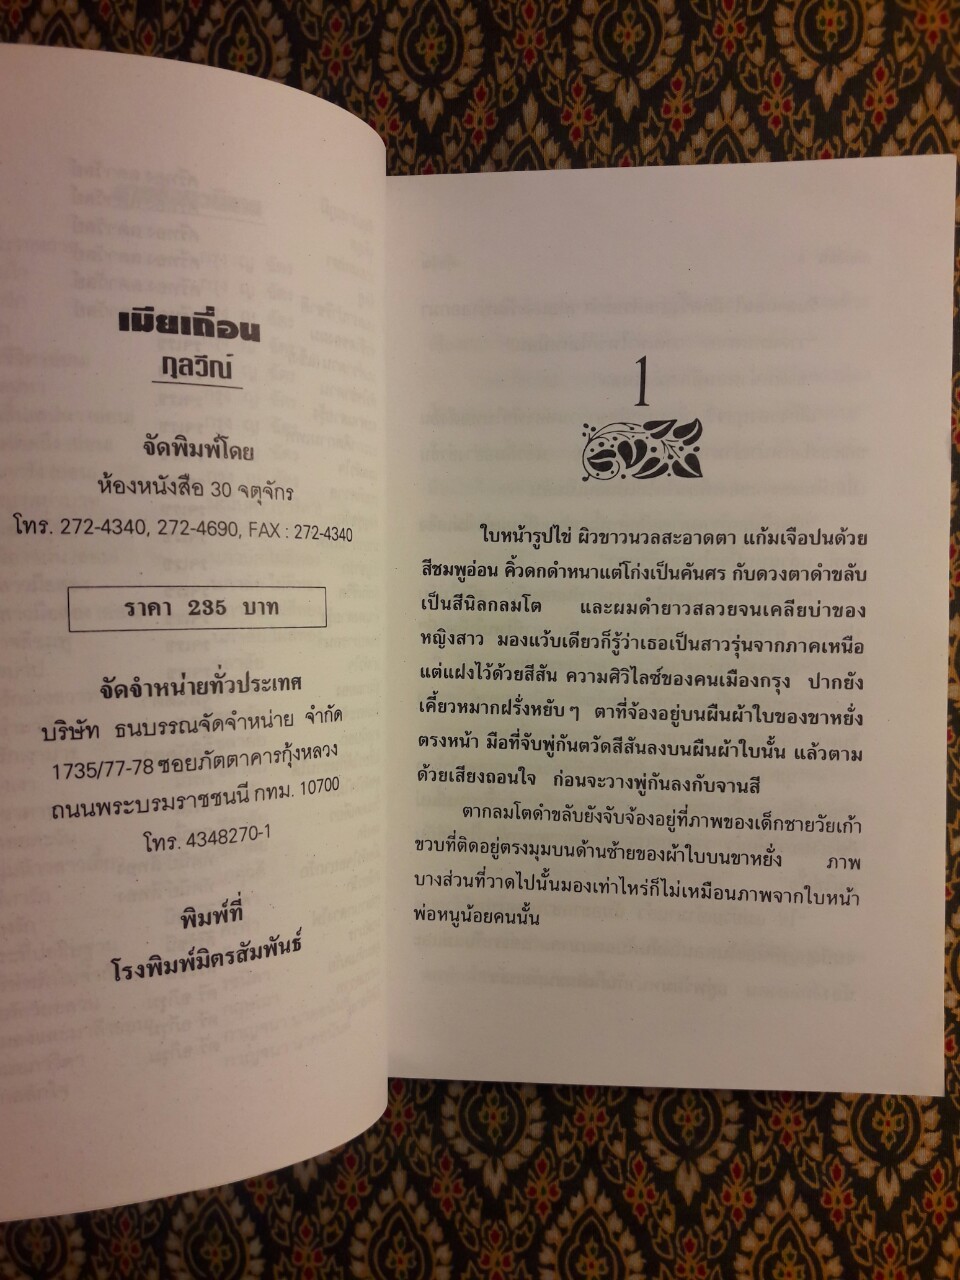 เมียเถื่อน
กุลวีณ์
จัดพิมพ์โดย
ห้องหนังสือ 30 จตุจักร
โทร. 272-4340, 272-4690, FAX : 272-4340
ราคา 235 บาท
จัดจำหน่ายทั่วประเทศ
บริษัท ธนบรรณจัดจำหน่าย จำกัด
1735/77-78 ซอยภัตตาคารกุ้งหลวง
ถนนพระบรมราชชนนี กทม. 10700
โทร. 4348270-1
พิมพ์ที่
โรงพิมพ์มิตรสัมพันธ์
1
ใบหน้ารูปไข่ ผิวขาวนวลสะอาดตา แก้มเจือปนด้วย
สีชมพูอ่อน คิ้วดกดำหนาแต่โก่งเป็นคันศร กับดวงตาดำขลับ
เป็นสีนิลกลมโต และผมดำยาวสลวยจนเคลียบ่าของ
หญิงสาว มองแว้บเดียวก็รู้ว่าเธอเป็นสาวรุ่นจากภาคเหนือ
แต่แฝงไว้ด้วยสีสัน ความศิวิไลซ์ของคนเมืองกรุง ปากยัง
เคี้ยวหมากฝรั่งหยับๆ ตาที่จ้องอยู่บนผืนผ้าใบของขาหยั่ง
ตรงหน้า มือที่จับพู่กันตวัดสีสันลงบนผืนผ้าใบนั้น แล้วตาม
ด้วยเสียงถอนใจ ก่อนจะวางพู่กันลงกับจานสี
ตากลมโตดำขลับยังจับจ้องอยู่ที่ภาพของเด็กชายวัยเก้า
ขวบที่ติดอยู่ตรงมุมบนด้านซ้ายของผ้าใบบนขาหยั่ง ภาพ
บางส่วนที่วาดไปนั้นมองเท่าไหร่ก็ไม่เหมือนภาพจากใบหน้า
พ่อหนูน้อยคนนั้น